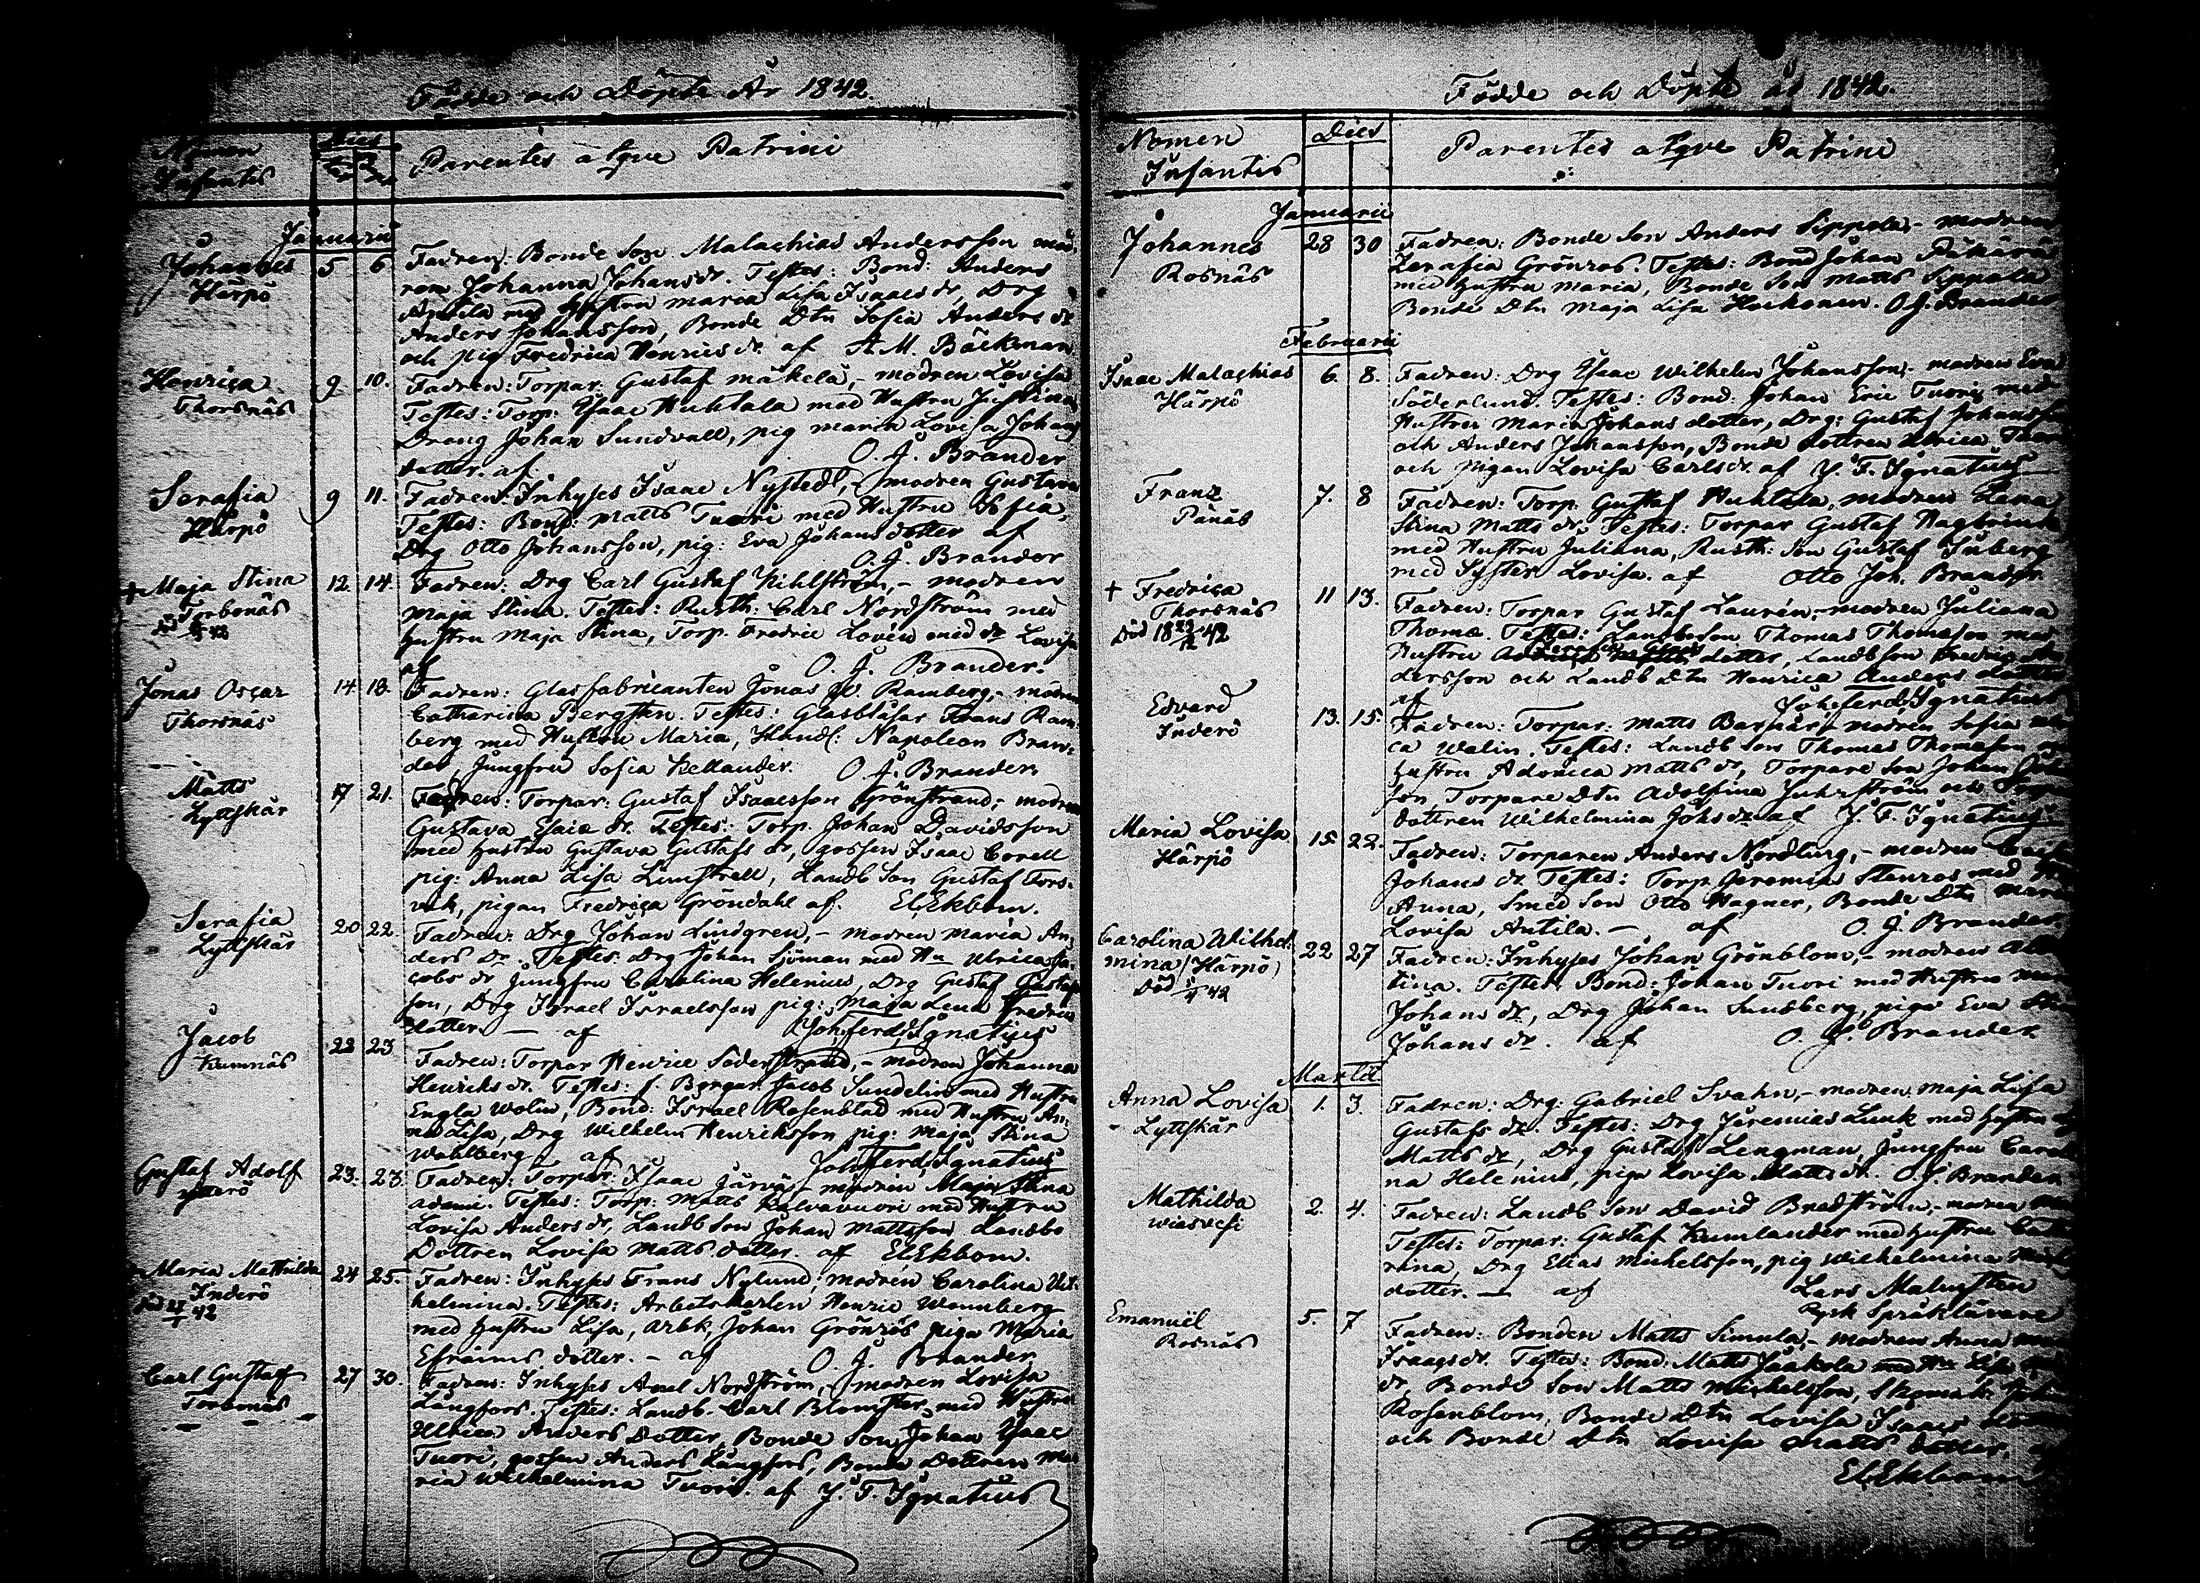 Födde och Döpte År 1842.
Nomen Infantis
Dies
Parentes atque Patrini
Januarii
Johannes
Härpö
5 6
Fadren: Bonde Son Malachias Andersson mod-
ren Johanna Johans dr. Testes: Bond: Anders
Antila med Hustru Maria Lisa Isaacs dr, Drg
Anders Johansson, Bonde Dtn Sofia Anders dr
och pig Fredrica Henrics dr. af A. M. Bäckman
Henrica
Thorsnäs
9 10.
Fadren: Torpar: Gustaf Mäkelä,- modren Lovisa
Testes: Torp: Isaac Huhtala med Hustru Justina
Dräng Johan Sundvall, pig Maria Lovisa Johans
dotter. af O. J. Brander
Serafia
Härpö
9 11.
Fadren: Inhyses Isaac Nystedt, modren Gustava
Testes: Bond: Matts Tuori med Hustru Sofia,
Drg Otto Johansson, pig: Eva Johans dotter af
O. J. Brander
+ Maja Stina
Torbonäs
12 14
Fadren: Drg Carl Gustaf Kihlström,- modren
Maja Stina. Testes: Rusth: Carl Nordström med
Hustru Maja Stina, Torp. Fredric Lovén med dr Lovisa
af O. J. Brander.
Jonas Oscar
Thorsnäs
14 18.
Fadren: Glasfabricanten Jonas Ramberg,- modren
Catharina Bergsten. Testes: Glasblåsar Frans Ram-
berg med Hustru Maria, Handl: Napoleon Bran-
der, Jungfru Sofia Kellander. O. J. Brander
Matts
Lyttskär
17 21.
Fadren: Torpar: Gustaf Isaacsson Grönstrand,- modren
Gustava Esaiæ dr. Testes: Torp. Johan Davidsson
med Hustru Gustava Gustafs dr, gossen Isaac Corell
pig: Anna Lisa Limstrell, Landb Son Gustaf Fors-
vik, pigan Fredrica Gröndahl af El. Ekbom.
Serafia
Lyttskär
20 22
Fadren: Drg Johan Lindgren,- modren Maria An-
ders Dr. Testes: Drg Johan Sjöman med Hu Ulrica Ja-
cobs dr, Jungfru Carolina Helenius, Drg Gustaf Gustafs
son, Drg Israel Israelsson pig: Maja Lena Fredrics
dotter. — af Joh. Ferd. Ignatius
Jacob
Kumnäs
22 23
Fadren: Torpar Henric Söderstrand,- modren Johanna
Henriks dr. Testes: f. Borgar Jacob Sundelin med Hustru
Engla Wolin, Bond: Israel Rosenblad med Hustru An-
na Lisa, Drg Wilhelm Henriksson pig: Maja Stina
Wahlberg af Joh. Ferd. Ignatius
Gustaf Adolf
ytterö
23. 23
Fadren: Torpar: Isaac Järvä,- modren Maja Stina
Adami. Testes: Torp: Matts Kalvavuori med Hustru
Lovisa Anders dr, Landb Son Johan Mattsson Landbo
Dottren Lovisa Matts dotter. af El. Ekbom.
Maria Mathilda
Inderö
24 25.
Fadren: Inhyses Frans Nylund; modren Carolina Wil-
helmina. Testes: Arbetskarlen Henric Wennberg
med Hustru Lisa, Arbk, Johan Grönros piga Maria
Efraims dotter. – af O. J. Brander
Carl Gustaf
Torbonäs
27 30.
Fadren: Inhyses Axel Nordström,- modren Lovisa
Långfors. Testes: Landb. Carl Blomster med Hustru
Ulrica Anders Dotter, Bonde Son Johan Isaac
Tuori, gossen Anders Långfors, Bonde Dottren Ma-
ria Wilhelmina Tuori. af J. F. Ignatius
Födde och Döpte år 1842.
Nomen Infantis
Dies
Parentes atque Patrini
Januarii
Johannes
Rosnäs
28 30
Fadren: Bonde Son Anders Sippola,- modren
Serafia Grönros. Testes: Bond Johan
med Hustru Maria, Bonde Son Matts Sippola
Bonde Dtn Maja Lisa Heikonen. O. J. Brander
Februarii
Isaac Malachias
Härpö
6. 8.
Fadren: Drg Isaac Wilhelm Johansson,- modren Eva
Söderlund. Testes: Bond. Johan Eric Tuori med
Hustru Maria Johans dotter, Drg: Gustaf Johansson
och Anders Johansson, Bonde dottren Ulrica Tuori
och Pigan Lovisa Carls dr. af J. F. Ignatius
Franz
Pänäs
7. 8
Fadren: Torp: Gustaf Huhtala, modren Lena
Stina Matts dr. Testes: Torpar Gustaf Hagbrink
med Hustru Juliana, Rusth: Son Gustaf Inberg
med Syster Lovisa. af Otto Joh. Brander
+ Fredrica
Thorsnäs
11 13.
Fadren: Torpar Gustaf Laurén,- modren Juliana
Thomæ. Testes: Landbson Thomas Thomæson med
Hustru dotter, Landbson Fredric An-
dersson och Landb Dtn Henrica Anders dotter
af Joh. Ferd. Ignatius
Edvard
Inderö
13. 15.
Fadren: Torpar: Matts Barkär,- modren Sofia
ca Walin. Testes: Landb Son Thomas Thomæson
Hustru Adonica Matts dr, Torpare Son Johan
son, Torpare Dtn Adolfina Juhrström och Torp
dottren Wilhelmina Johs dr af J. F. Ignatius
Maria Lovisa
Härpö
15 22.
Fadren: Torparen Anders Nordberg,- modren
Johans dr. Testes: Torp. Jeremia Stenros med
Anna, Smed Son Otto Wagner, Bonde Dtn Maria
Lovisa Antila. – af O. J. Brander.
Carolina Wilhel-
mina (Härpö)
22 27
Fadren: Inhyses Johan Grönblom,- modren
tina. Testes: Bond: Johan Tuori med Hustru
Johans dr, Drg Johan Sundberg, piga Eva Stina
Johans dr. af O. J. Brander.
Martii
Anna Lovisa
Lyttskär
1. 3.
Fadren: Drg: Gabriel Svahn,- modren Maja Lisa
Gustafs dr. Testes: Drg Jeremias Lunk med Hustru
Matts dr, Drg Gustaf Lengman, Jungfru Caroli
na Helenius, piga Lovisa Matts dr. O. J. Brander
Mathilda
wiasvesi
2. 4.
Fadren: Landb Son David Bredström,- modren
Testes: Torpar: Gustaf Kumlander med Hustru Catha
rina, Drg Elias Mickelsson, pig Wilhelmina
dotter. — af Lars Malmsten
Rysk Språklärare
Emanuël
Rosnäs
5. 7
Fadren: Bonden Matts Simula,- modren Anna
Isaags dr. Testes: Bond: Matts Jaakola med Hu Lisa
dr, Bonde Son Matts Mickelsson, Skomak: Johan
Rosenblom, Bonde Dtn Lovisa Isaacs dotter
och Bonde Dtn Lovisa Matts dotter.
El. Ekbom